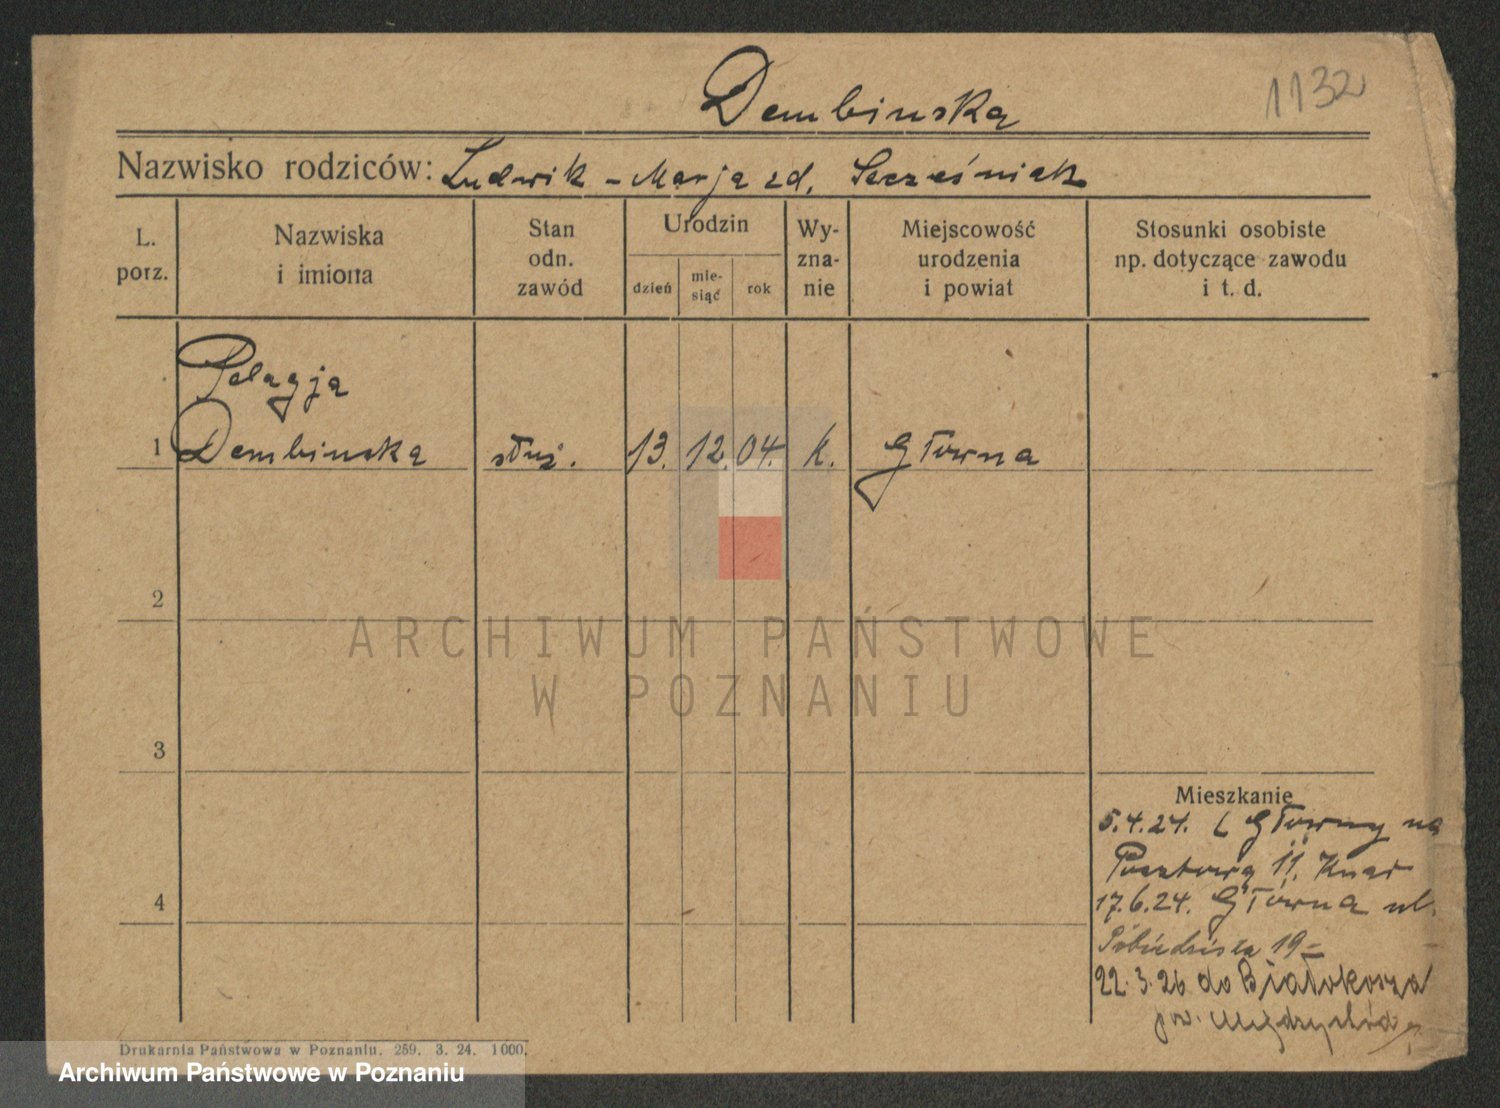 1132
Dembinska
Nazwisko rodziców: Ludwik - Marja zd. Szcześniak
L. porz.
Nazwiska i imiona
Stan odn. zawód
Urodzin
dzień
mie-
siąć
rok
Wy-
zna-
nie
Miejscowość urodzenia i powiat
Stosunki osobiste
np. dotyczące zawodu
i t. d.
Pelagja
1 Dembinska służ. 13. 12. 04. k. Główna
2
ARCHIWUM PAŃSTWOWE
W POZNANIU
3
Mieszkanie
5.4.24. z Główny na
Pocztową 11.
4
17.6.24. Główna ul.
Pobiedziska 19
22.3.26 do Białokosza
pow. Międzychód
Drukarnia Państwowa w Poznaniu. 259. 3. 24. 1000.
Archiwum Państwowe w Poznaniu